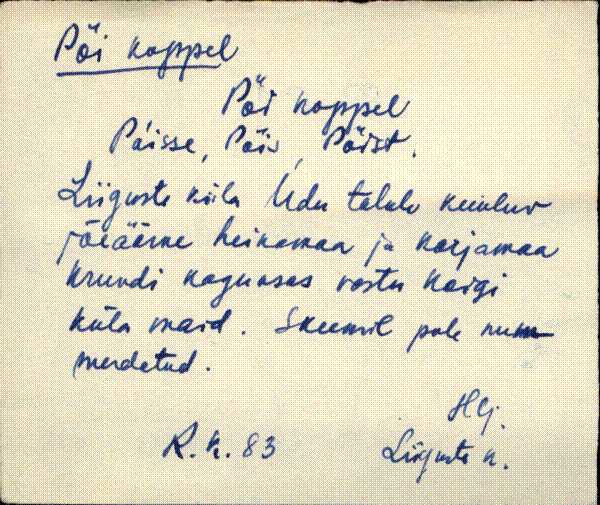 Põi koppel
Põi koppel
Päisse, Põis, Põist.
Liiguste küla Udu talule kuuluv
jõeäärne heinamaa ja karjamaa
krundi kaguosas vastu Kaigi
küla maid. Skeemil pole num-
merdatud.
Hlj.
R.K. 83 Liiguste k.